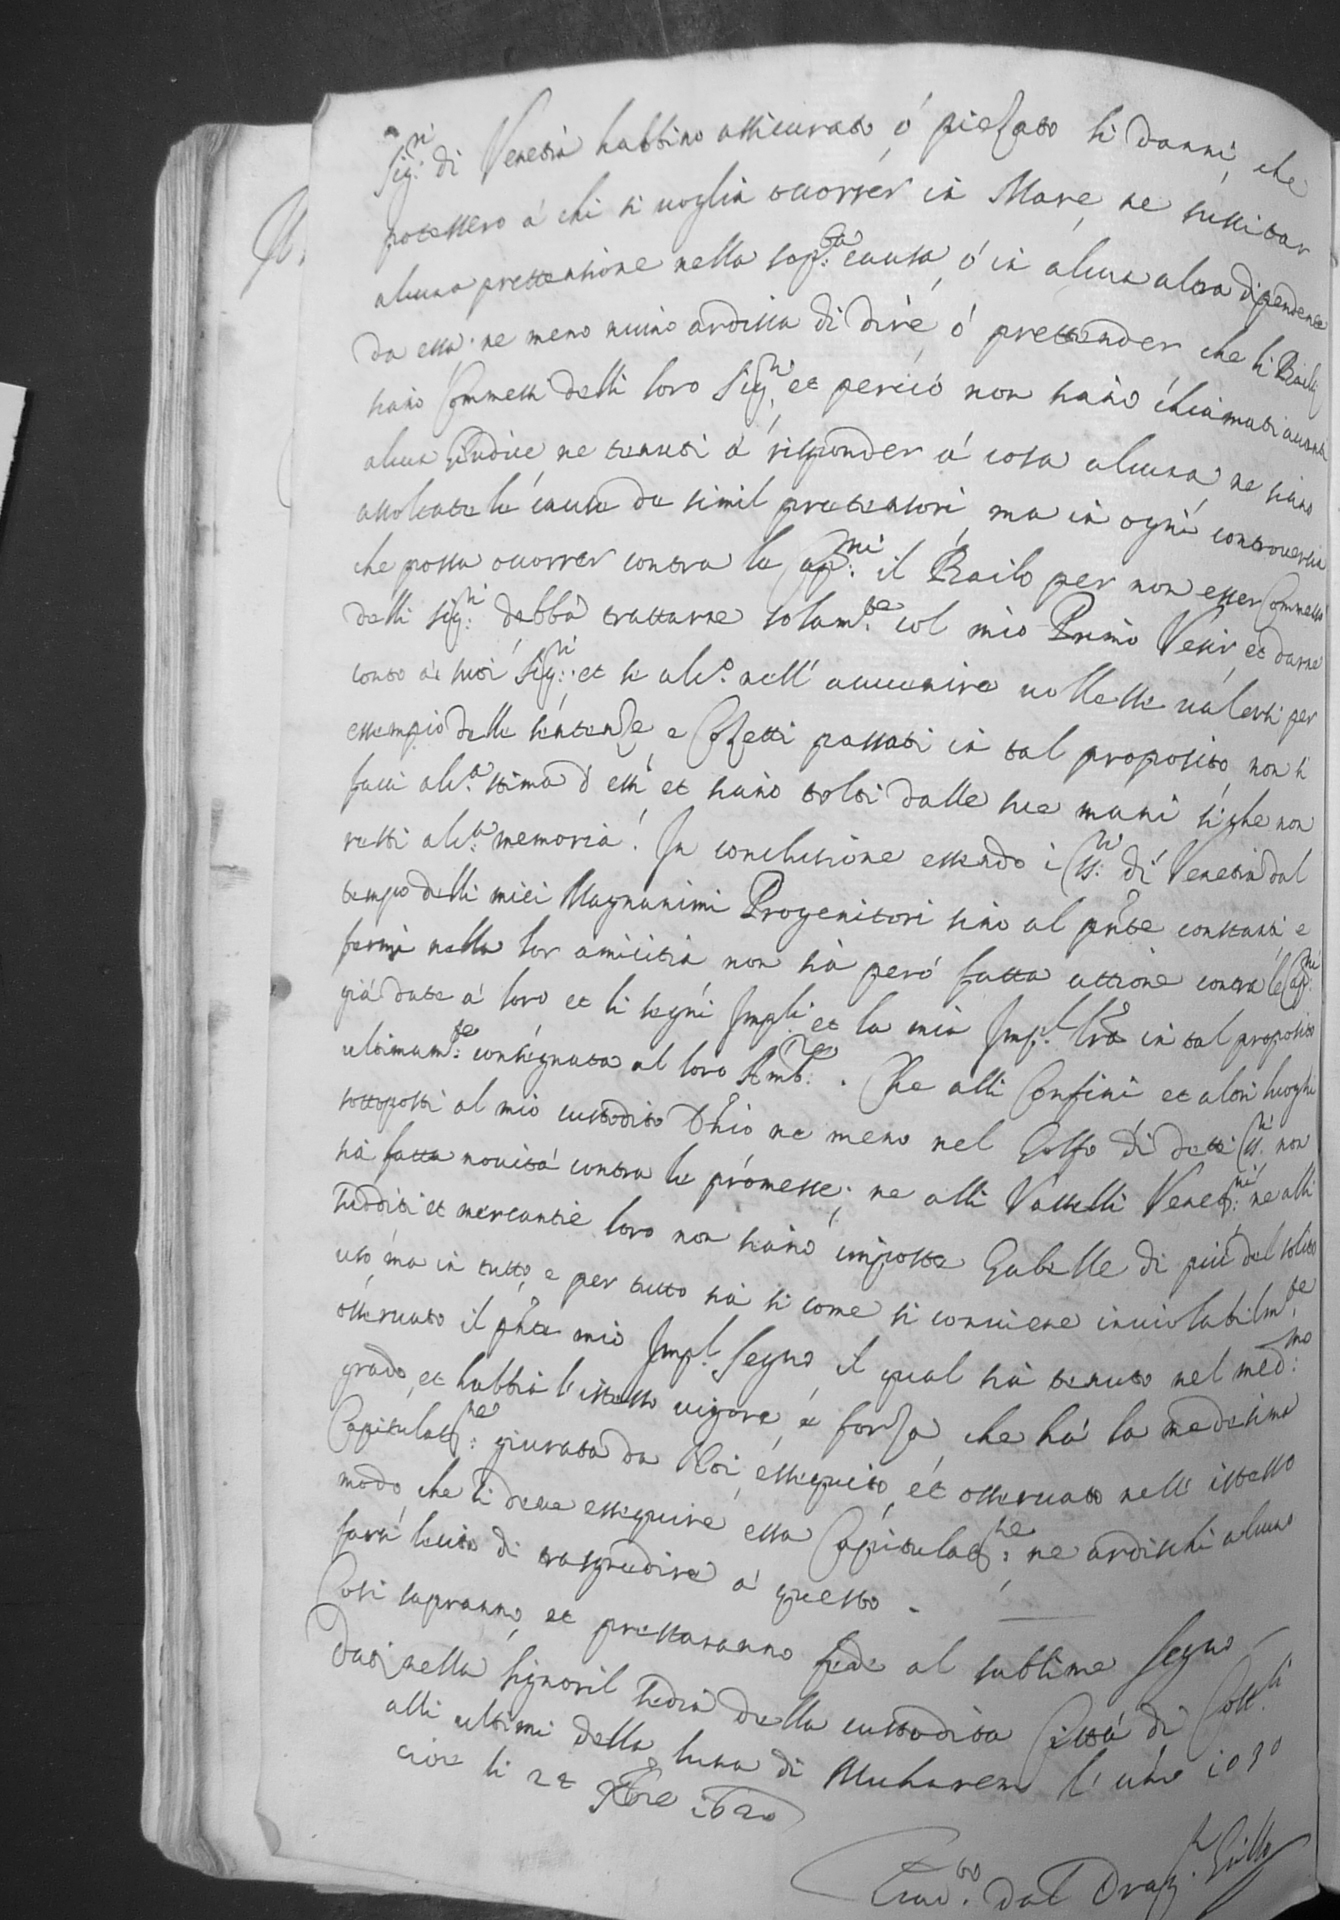 Sig:ri di Venetia habbino assicurato, ó pieggiato li danni, che
potessero á chi si voglia occorrer in Mare, ne suscitar
alcuna prettensione nella sop:ta causa, ó in alcun altra dipendente
da essa. ne meno niuno ardisca di dire, ó prettender che li Baili
siano Commessi delli loro Sig:ri, et perció non siano chiamati avanti
alcun Giudice ne tenuti á risponder á cosa alcuna ne siano
ascoltate le cause de simil pretensori, ma in ogni controversia
che possa occorrer contra le Cap:ni il Bailo per non esser Commesso
delli Sig:ri debba trattarne solam:te col mio Primo Vesir, et darne
conto á suoi Sig:ri. et se alc.o nell' avvenire volesse valersi per
essempio delle sentenze, e Cozzetti passati in tal proposito non si
facci alc.a stima d' essi et siano tolti dalle sue mani si che non
resti alc:a memoria. In conclusione essendo i SS:ri di Venetia dal
tempo delli miei Magnanimi Progenitori sino al pñte constanti, e
fermi nella lor amicitia non sia peró fatta attione contra le Cap:ni
giá date á loro et li segni Imp.li et la mia Imp.l lrã in tal proposito
ultimam:te consignata al loro Amb:re. Che alli Confini et altri luoghi
sottoposti al mio custodito Dñio ne meno nel Golfo di detti SS:ri non
sia fatta novitá contra le promesse; ne alli Vasselli Venet:ni ne alli
sudditi et mercantie loro non siano imposte Gabelle di piú del solito
uso, ma in tutto, e per tutto sia si come si conviene inviolabilm:te
osservato il pñte mio Imp.l Segno, il qual sia tenuto nel med:mo
grado, et habbia l' istesso vigore, é forza che há la medesima
Capitulat:ne giurata da Noi, esseguito, ét osservato nell' istesso
modo, che si deve esseguire essa Capitulat:ne, ne ardischi alcuno
fará lecito di trasgredire á questo.
Cosi sapranno, et prestaranno fede al sublime segno
Dat. nella signoril sedia della custodita Cittá di Cost.li
alli ultimi della luna di Muharem l' año 1030
cioe li 22 Xbre 1620
Trad.to dal Drag.n Grillo